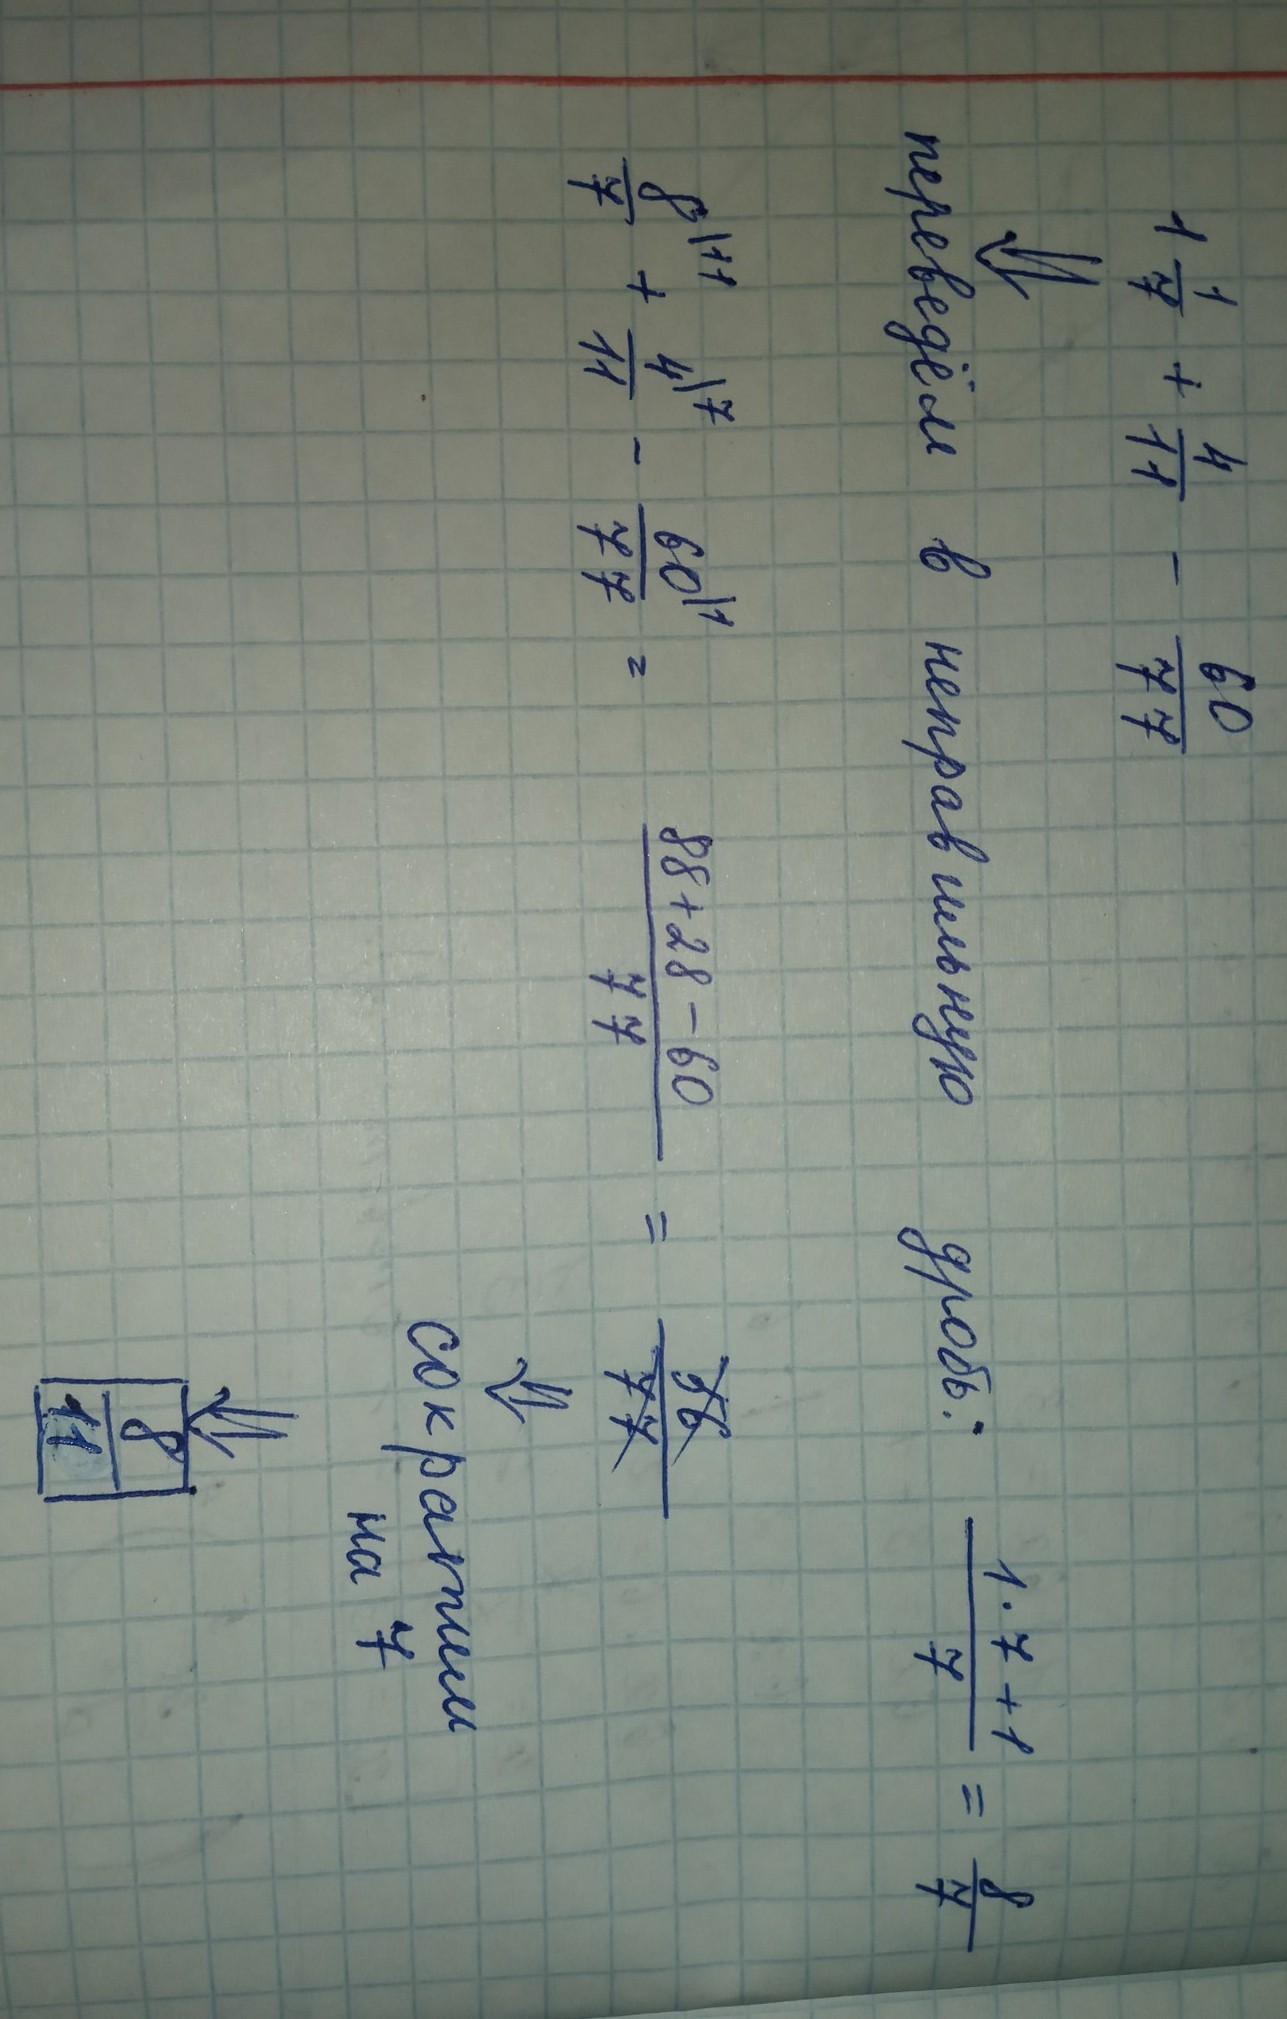 1 1/7 + 4/11 - 60/77
переведём в неправильную дробь: (1·7+1)/7 = 8/7
8\11/7 + 4\7/11 - 60\1/77 = (88+28-60)/77 = 56/77
сократим
на 7
8/11